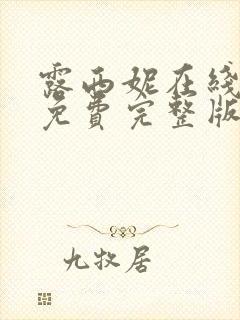 露西妮在线
免費完整版
九牧居